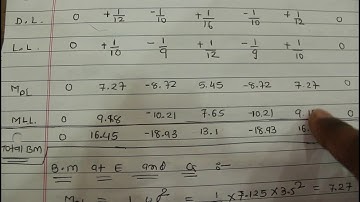 D.L. 0 +1/12 -1/10 +1/16 -1/10 +1/12 0
L.L. 0 +1/10 -1/9 +1/12 -1/9 +1/10 0
MDL 0 7.27 -8.72 5.45 -8.72 7.27 0
MLL. 0 9.18 -10.21 7.65 -10.21 9.1 0
0 16.45 -18.93 13.1 -18.93 16. 0
Total BM
B.M at E and G :-
= 1/ = 1/ × 7.125 × 3.5² = 7.27